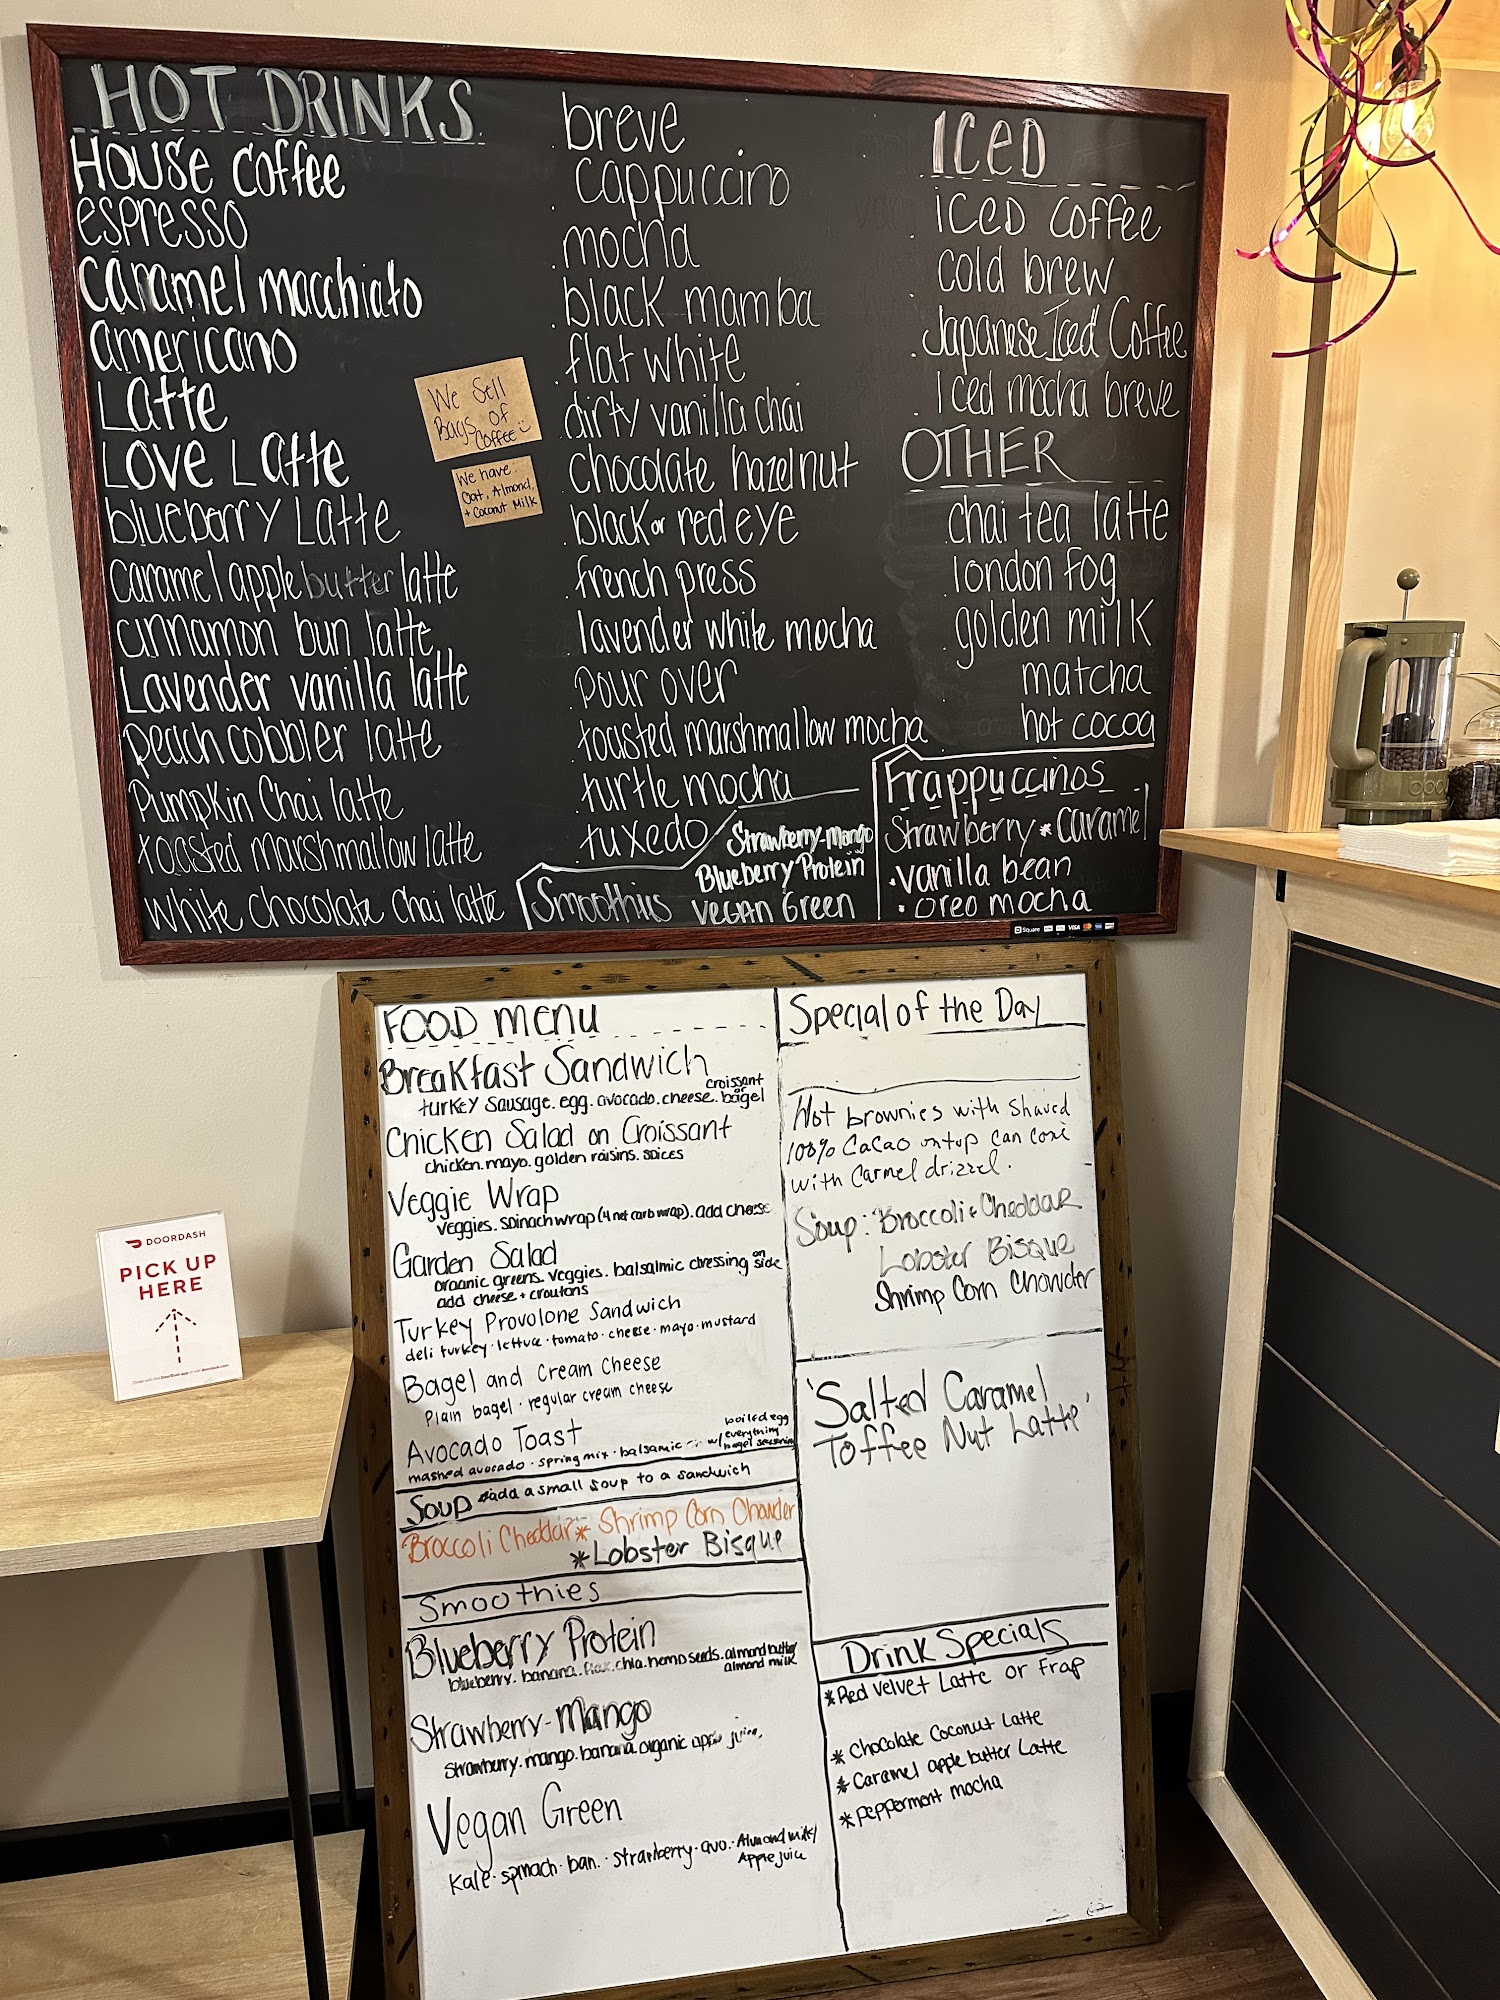 HOT DRINKS
House Coffee
espresso
caramel macchiato
americano
Latte
Love Latte
blueberry Latte
caramel apple butter latte
cinnamon bun latte
Lavender vanilla latte
peach cobbler latte
Pumpkin Chai latte
toasted marshmallow latte
White chocolate chai latte
We Sell
Bags of
Coffee
We have
Oat, Almond,
+ Coconut Milk
breve
. cappuccino
. mocha
. black mamba
. flat white
. dirty vanilla chai
. chocolate hazelnut
. black or red eye
. french press
. lavender white mocha
. pour over
. toasted marshmallow mocha
. turtle mocha
. tuxedo
Smoothies
Strawberry-Mango
Blueberry Protein
VEGAN Green
ICED
. iced coffee
. cold brew
. Japanese Iced Coffee
. Iced mocha breve
OTHER
. chai tea latte
. london fog
. golden milk
matcha
hot cocoa
Frappuccinos
Strawberry * caramel
. vanilla bean
. oreo mocha
Square
VISA
FOOD MENU
Breakfast Sandwich
turkey sausage. egg. avocado. cheese. croissant or bagel
Chicken Salad on Croissant
chicken. mayo. golden raisins. spices
Veggie Wrap
veggies. spinach wrap (4 net carb wrap). add cheese
Garden Salad
organic greens. veggies. balsalmic dressing on side
add cheese + croutons
Turkey Provolone Sandwich
deli turkey · lettuce · tomato · cheese · mayo · mustard
Bagel and Cream Cheese
Plain bagel · regular cream cheese
Avocado Toast
mashed avocado · spring mix · balsamic w/ boiled egg everything bagel seasoning
Soup *add a small soup to a sandwich
Broccoli Cheddar * Shrimp Corn Chowder
* Lobster Bisque
Smoothies
Blueberry Protein
blueberry. banana. flax. chia. hemp seeds. almond butter
almond milk
Strawberry-Mango
strawberry. mango. banana. organic apple juice.
Vegan Green
Kale · spinach · ban. · strawberry · avo. · Almond milk/
Apple juice
Special of the Day
Hot brownies with shaved
100% Cacao ontop can come
with Carmel drizzel.
Soup: Broccoli & Cheddar
Lobster Bisque
Shrimp Corn Chowder
'Salted Caramel
Toffee Nut Latte'
Drink Specials
* Red Velvet Latte or Frap
* Chocolate Coconut Latte
* Caramel apple butter Latte
* pepperment mocha
DOORDASH
PICK UP
HERE